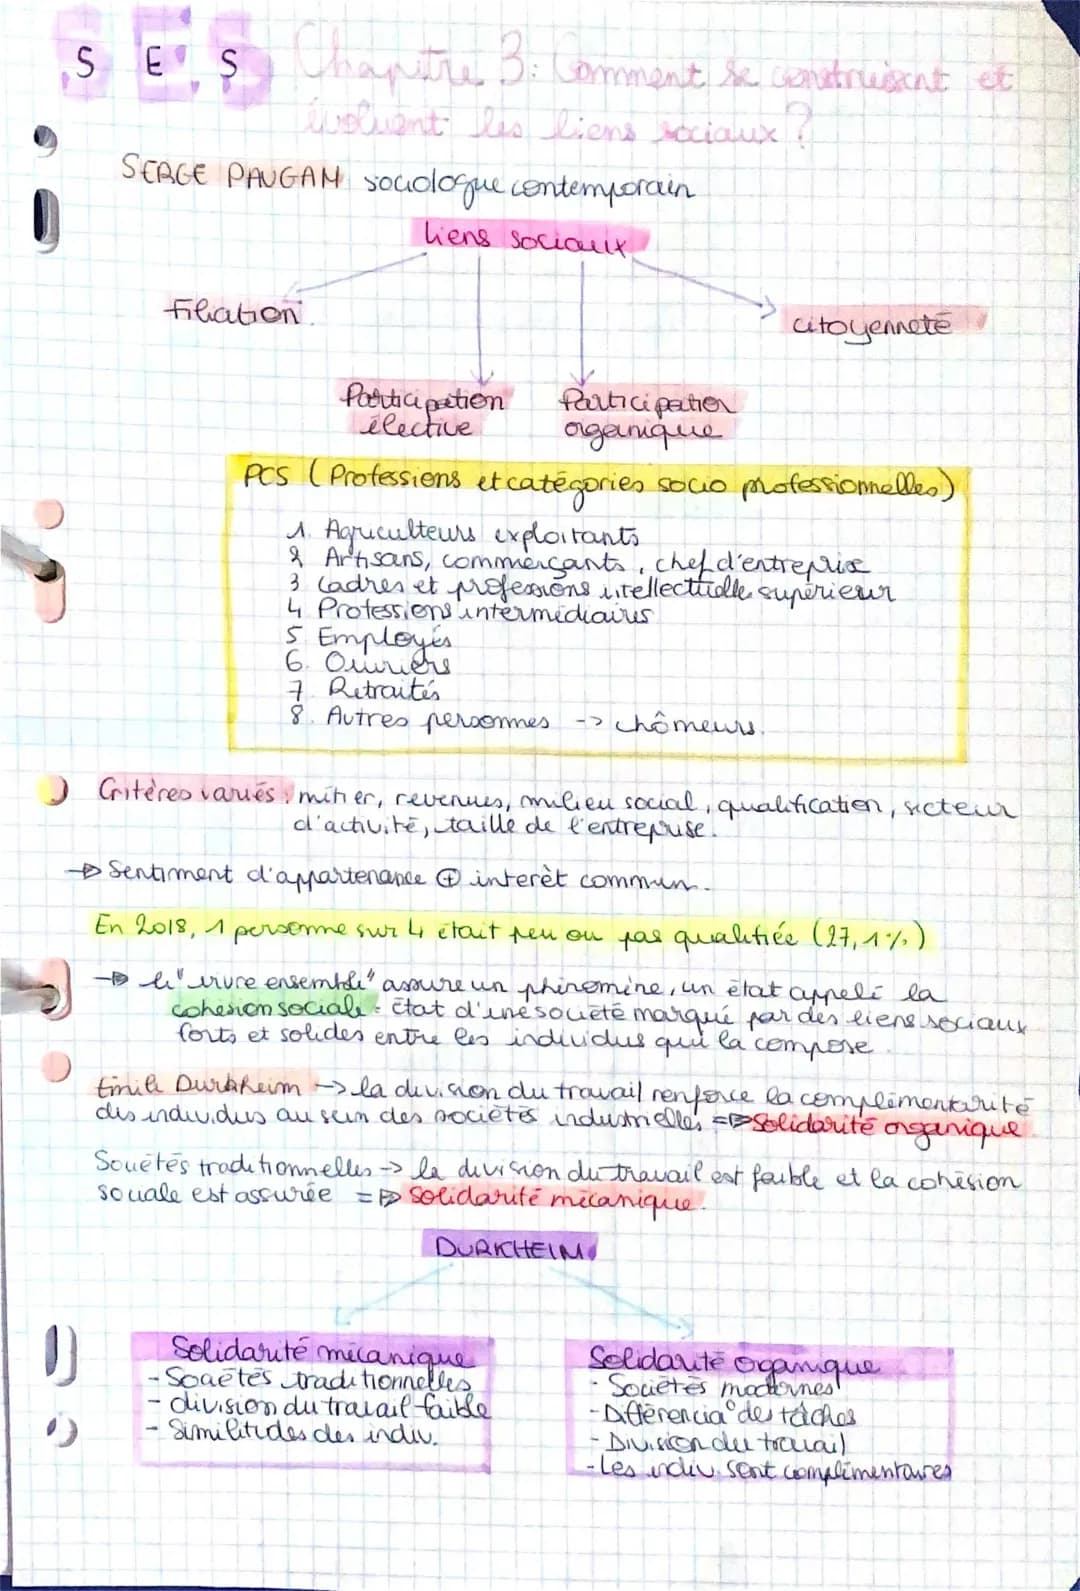 S E S Chapitre 3 : Comment se construisent et
évoluent les liens sociaux ?
SERGE PAUGAM sociologue contemporain
liens sociaux
Filiation
citoyenneté
Participation
élective
Participation
organique
PCS (Professions et catégories socio professionnelles)
1. Agriculteurs exploitants
2 Artisans, commerçants, chef d'entreprise
3 Cadres et professions intellectuelle supérieur
4 Professions intermédiaires
5 Employés
6. Ouvriers
7 Retraités
8. Autres personnes -> chômeurs.
Critères variés : métier, revenues, milieu social, qualification, secteur
d'activité, taille de l'entreprise.
-> Sentiment d'appartenance ⊕ interèt commun.
En 2018, 1 personne sur 4 était peu ou pas qualifiée (27,1%)
-> le "vivre ensemble" assure un phénomène, un état appelé la
cohésion sociale : état d'une société marqué par des liens sociaux
forts et solides entre les individus qui la compose.
Emile Durkheim -> la division du travail renforce la complémentarité
des individus au sein des sociétés industrielles => Solidarité organique
Sociétés traditionnelles -> la division du travail est faible et la cohésion
sociale est assurée => Solidarité mécanique.
DURKHEIM
Solidarité mécanique
- Sociétés traditionnelles
- division du travail faible
- Similitudes des indiv.
Solidarité organique
- Sociétés modernes
- Différencia° des tâches
- Division du travail
- Les indiv. sont complémentaires